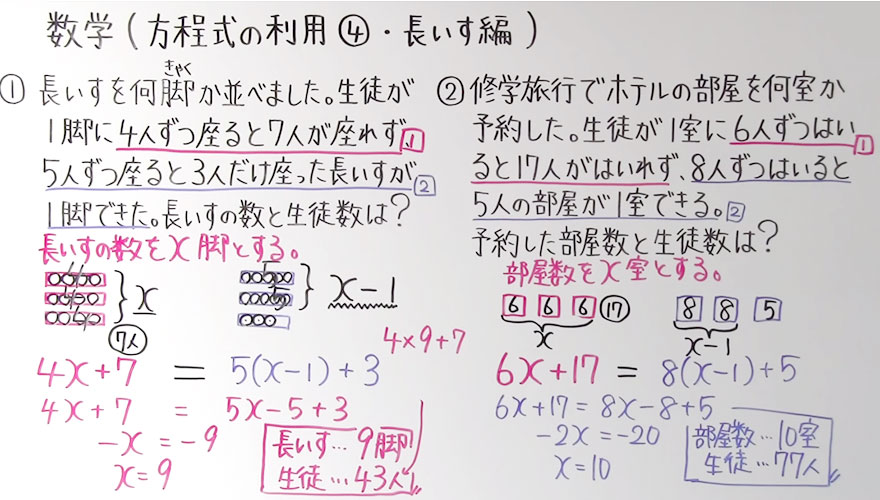 数学(方程式の利用④・長いす編)
① 長いすを何脚か並べました。生徒が
きゃく
1脚に4人ずつ座ると7人が座れず、1
5人ずつ座ると3人だけ座った長いすが2
1脚できた。長いすの数と生徒数は?
長いすの数をx脚とする。
4 4 4
x
7人
5 5
x-1
4×9+7
4x+7 = 5(x-1)+3
4x+7 = 5x-5+3
-x=-9
x=9
長いす…9脚
生徒…43人
② 修学旅行でホテルの部屋を何室か
予約した。生徒が1室に6人ずつはい1
ると17人がはいれず、8人ずつはいると
5人の部屋が1室できる。2
予約した部屋数と生徒数は?
部屋数をx室とする。
6 6 6 17
x
8 8 5
x-1
6x+17 = 8(x-1)+5
6x+17=8x-8+5
-2x=-20
x=10
部屋数…10室
生徒…77人